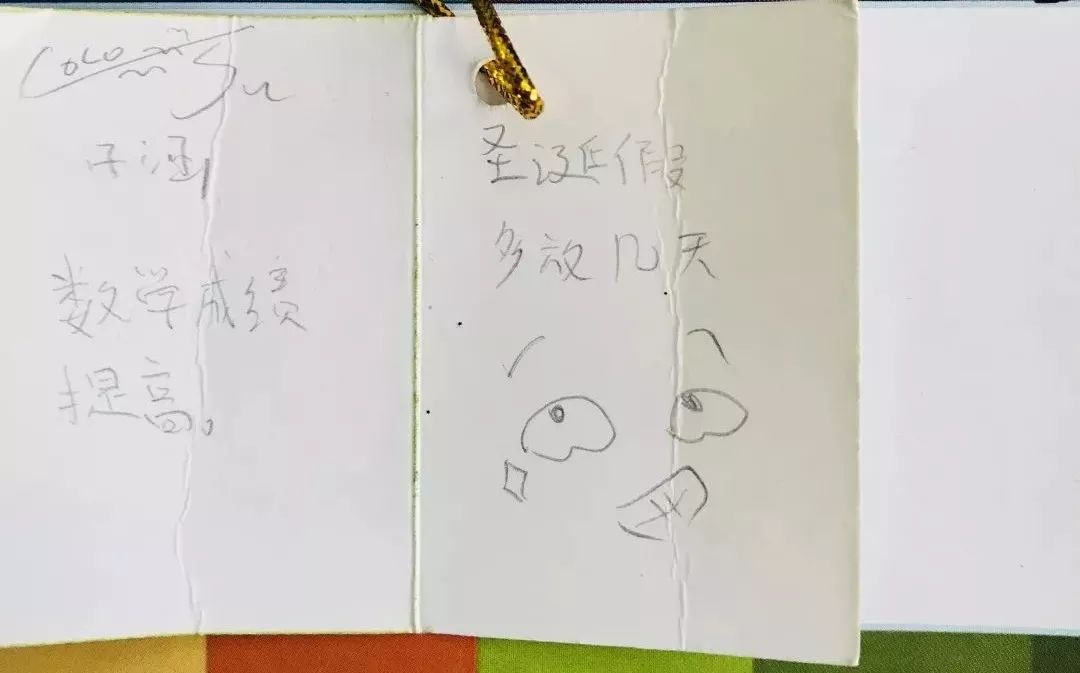 Coco Su
子涵
数学成绩
提高。
圣诞假
多放几天